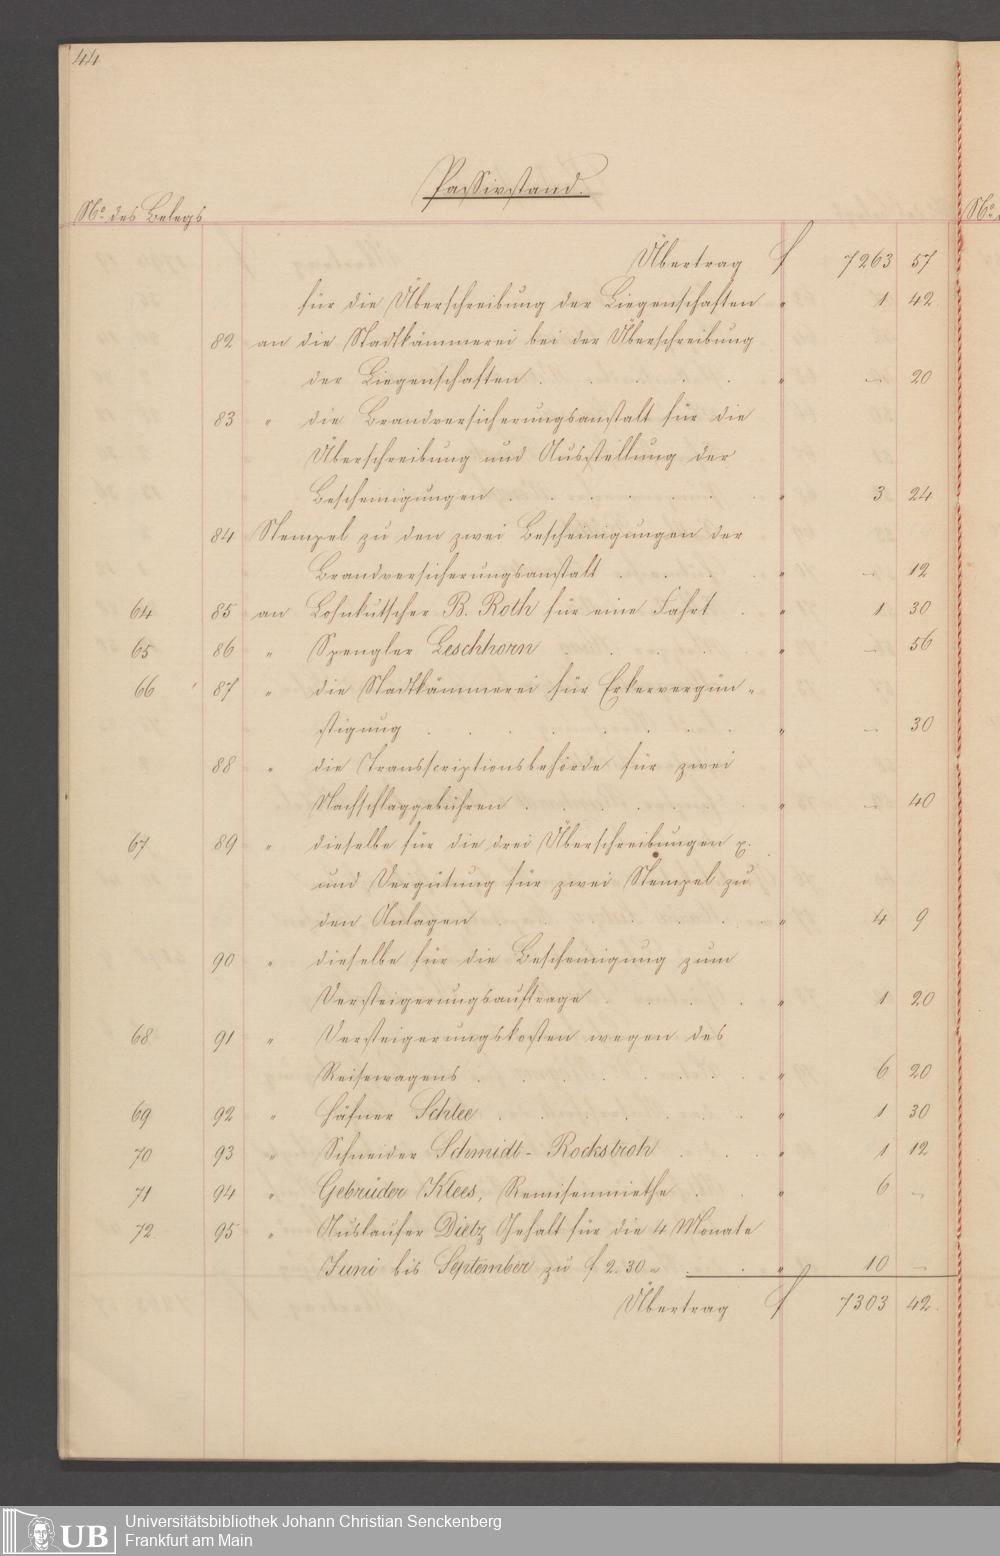 44
Passivstand.
No. des Belegs
Übertrag f 7263 57
für die Überschreibung der Liegenschaften " 1 42
82 an die Stadtkämmerei bei der Überschreibung
der Liegenschaften . . . . . " — 20
83 " die Brandversicherungsanstalt für die
Überschreibung und Ausstellung der
Bescheinigungen . . . . . . " 3 24
84 Stempel zu den zwei Bescheinigungen der
Brandversicherungsanstalt . . . . " — 12
64 85 an Lohnkutscher B. Roth für eine Fahrt . " 1 30
65 86 " Spengler Leschhorn . . . . . " — 56
66 87 " die Stadtkämmerei für Erkervergün-
stigung . . . . . . . " — 30
88 " die Transscriptionsbehörde für zwei
Nachschlaggebühren . . . . . . " — 40
67 89 " dieselbe für die drei Überschreibungen
und Vergütung für zwei Stempel zu
den Anlagen . . . . . . " 4 9
90 " dieselbe für die Bescheinigung zum
Versteigerungsauftrage . . . . " 1 20
68 91 " Versteigerungskosten wegen des
Reisewagens . . . . . . . " 6 20
69 92 " Häfner Schlee . . . . . . " 1 30
70 93 " Schneider Schmidt-Rockstroh . . . " 1 12
71 94 " Gebrüder Klees, Remisenmiethe . . " 6 —
72. 95 " Auslaufer Dietz Gehalt für die 4 Monate
Juni bis September zu f 2.30 . . " 10 —
Übertrag f 7303 42.
No.
UB Universitätsbibliothek Johann Christian Senckenberg
Frankfurt am Main